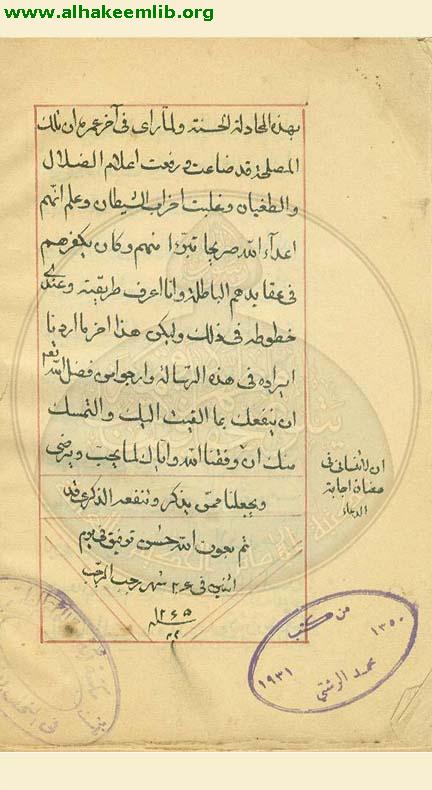 www.alhakeemlib.org
بهذه المجادلة الحسنة ولما رأى في آخر عمره ان تلك
المصلحة قد ضاعت ورفعت اعلام الضلال
والطغيان وغلبت احزاب الشيطان وعلم انهم
اعداء الله صريحا تبرء منهم وكان يكفرهم
في عقايدهم الباطلة وانا اعرف طريقته وعندي
خطوطه في ذلك وليكن هذا اخر ما اردنا
ايراده في هذه الرسالة وارجو من فضل الله تع
ان ينفعك بما القيت اليك والتمسك
منك ان وفقنا الله واياك لما يحب ويرضى
ان لا تنساني في
مضان اجابة
الدعاء
ويجعلنا ممن يذكر وتنفعه الذكرى قد
تم بعون الله حسن توفيقه في يوم
اثنين في ٢٤ شهر رجب المرجب
سنه ١٢٦٥
من كتب
١٣٥٠
محمد الرشتي
١٩٣١